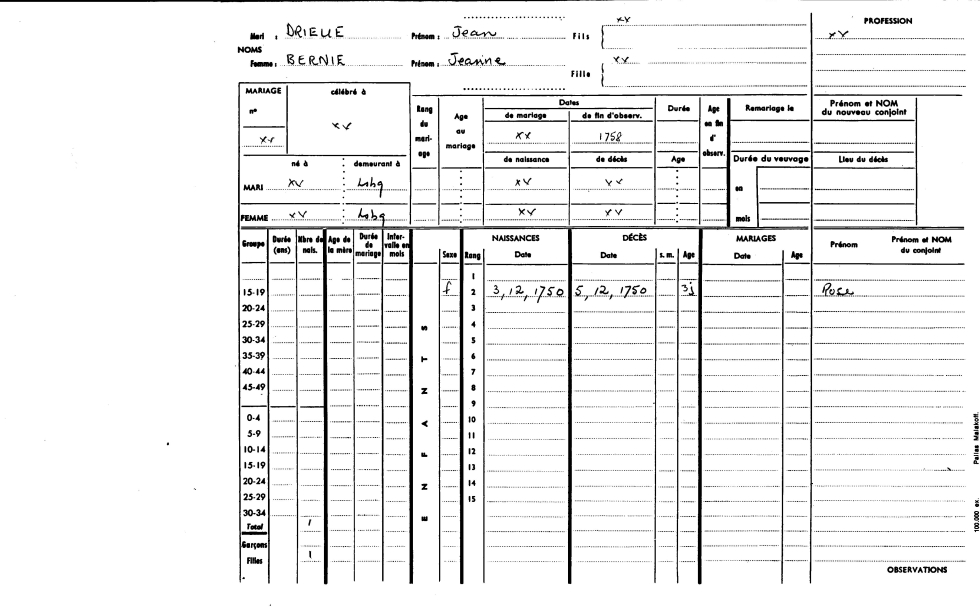 xx PROFESSION
Mari : DRIEUE Prénom : Jean Fils xx
NOMS
Femme : BERNIE Prénom : Jeanne Fille xx
MARIAGE célébré à
n° xx
xx
Rang du mariage Age au mariage Dates Durée Age en fin d' observ. Remariage le Prénom et NOM du nouveau conjoint
de mariage de fin d'observ.
xx 1758
né à demeurant à de naissance de décès Age Durée du veuvage Lieu du décès
MARI xx Lsbq xx xx en
FEMME xx Lsbq xx xx mois
Groupe Durée (ans) Nbre de nais. Age de la mère Durée de mariage Intervalle en mois Sexe Rang NAISSANCES Date DÉCÈS Date s. m. Age MARIAGES Date Age Prénom Prénom et NOM du conjoint
1
15-19 f 2 3, 12, 1750 5, 12, 1750 3j Rose
20-24 3
25-29 4
30-34 5
35-39 6
40-44 7
45-49 8
9
0-4 10
5-9 11
10-14 12
15-19 13
20-24 14
25-29 15
30-34
Total 1
Garçons
Filles 1
ENFANTS
OBSERVATIONS
100.000 ex. Pallas Malakoff.